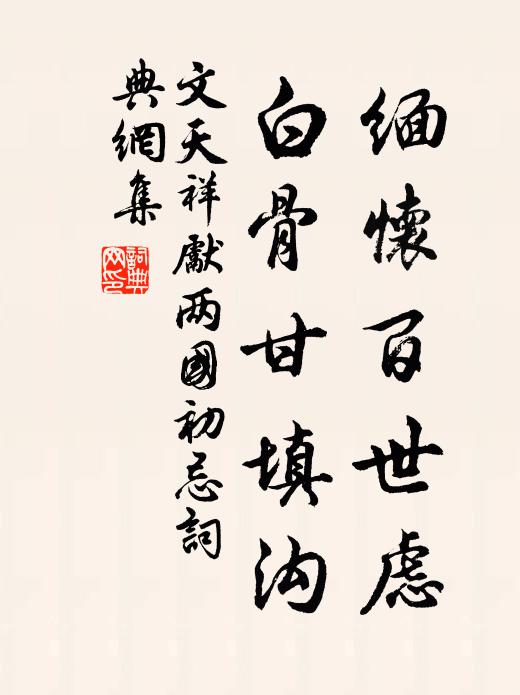 缅懷百世慮
白骨甘填沟
文天祥獻两國初忌詞
典網集
詞典
网印